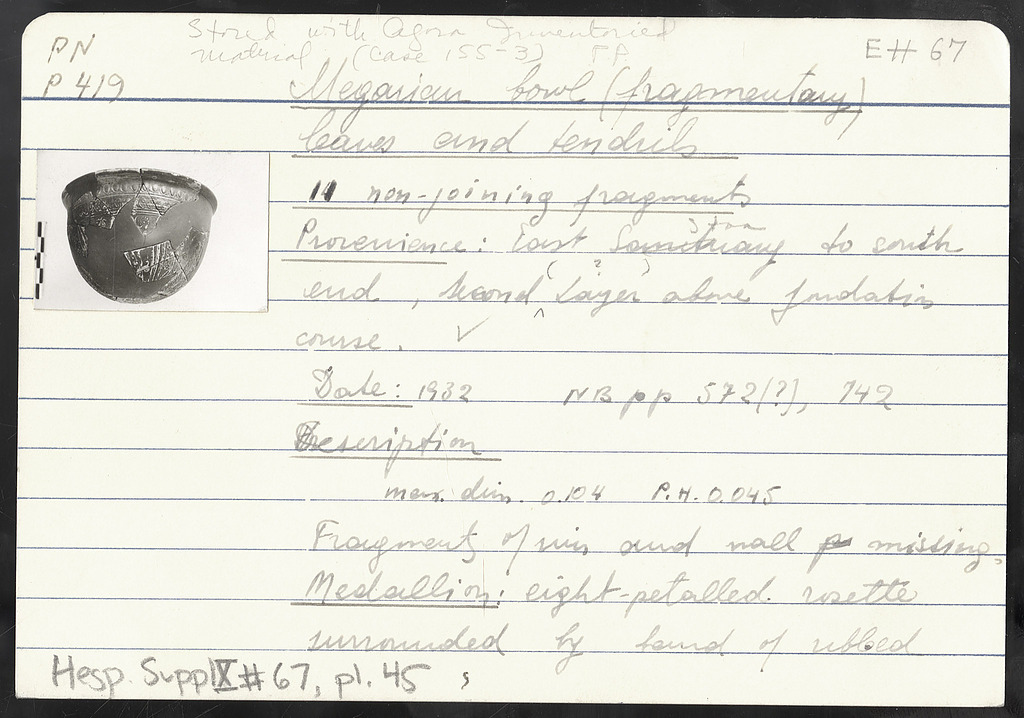 Stored with Agora Inventoried
PN material (case 155-3) FA EH 67
P 419
Megarian bowl (fragmentary)
leaves and tendrils
11 non-joining fragments
Stoa
Provenience: East Sanctuary to south
( ? )
end, second Layer above fondation
course. ✓
Date: 1932 NB pp 572(?), 742
Description
max. dim. 0.104 P.H. 0.045
Fragments of rim and wall missing.
Medallion: eight-petalled rosette
surrounded by band of ribbed
Hesp. Suppl IX # 67, pl. 45